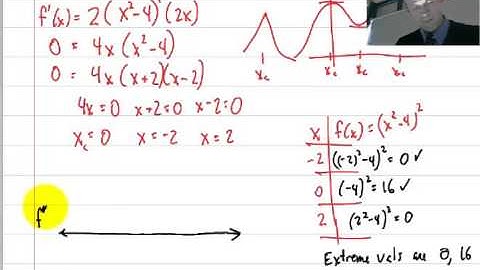 f'(x) = 2(x²-4)¹(2x)
0 = 4x(x²-4)
0 = 4x(x+2)(x-2)
4x=0 x+2=0 x-2=0
x꜀=0 x=-2 x=2
x꜀ x꜀ x꜀ x꜀
x f(x)=(x²-4)²
-2 ((-2)²-4)²=0 ✓
0 (-4)²=16 ✓
2 (2²-4)²=0
f"
Extreme vals are 0, 16